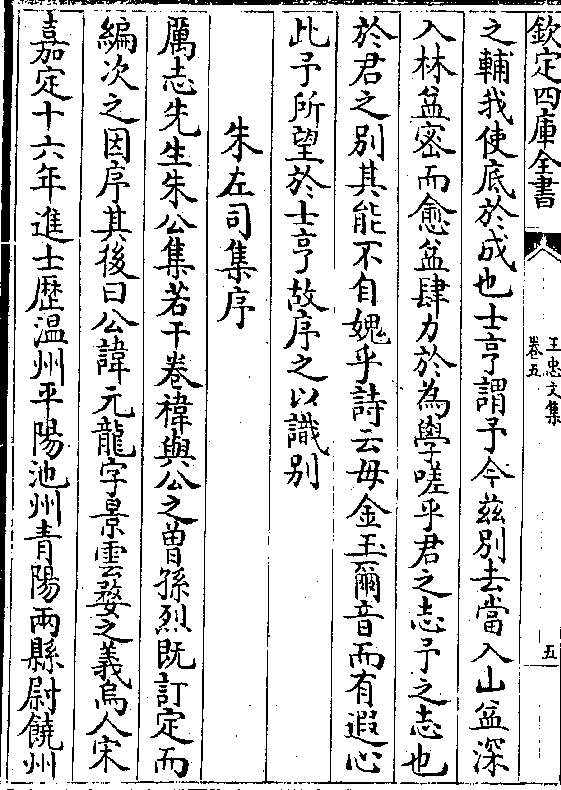 欽定四庫全書
王忠文集
卷五
五
之輔我使底於成也士亨謂予今兹別去當入山益深
入林益宻而愈益肆力於為學嗟乎君之志予之志也
於君之别其能不自媿乎詩云毋金玉爾音而有遐心
此予所望於士亨故序之以識别
朱左司集序
厲志先生朱公集若干卷禕與公之曽孫烈既訂定而
編次之因序其後曰公諱元龍字景雲婺之義烏人宋
嘉定十六年進士歴温州平陽池州青陽兩縣尉饒州